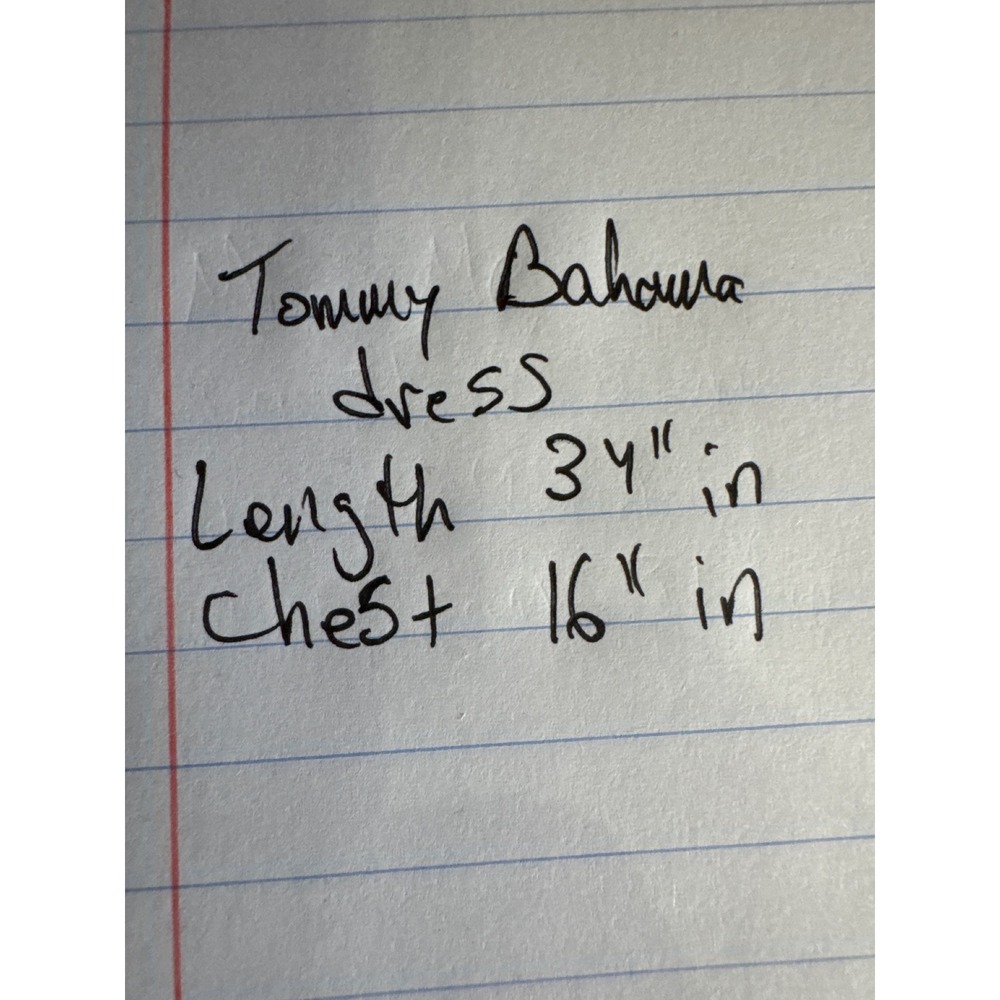 Tommy Bahama
dress
Length 34" in
Chest 16" in